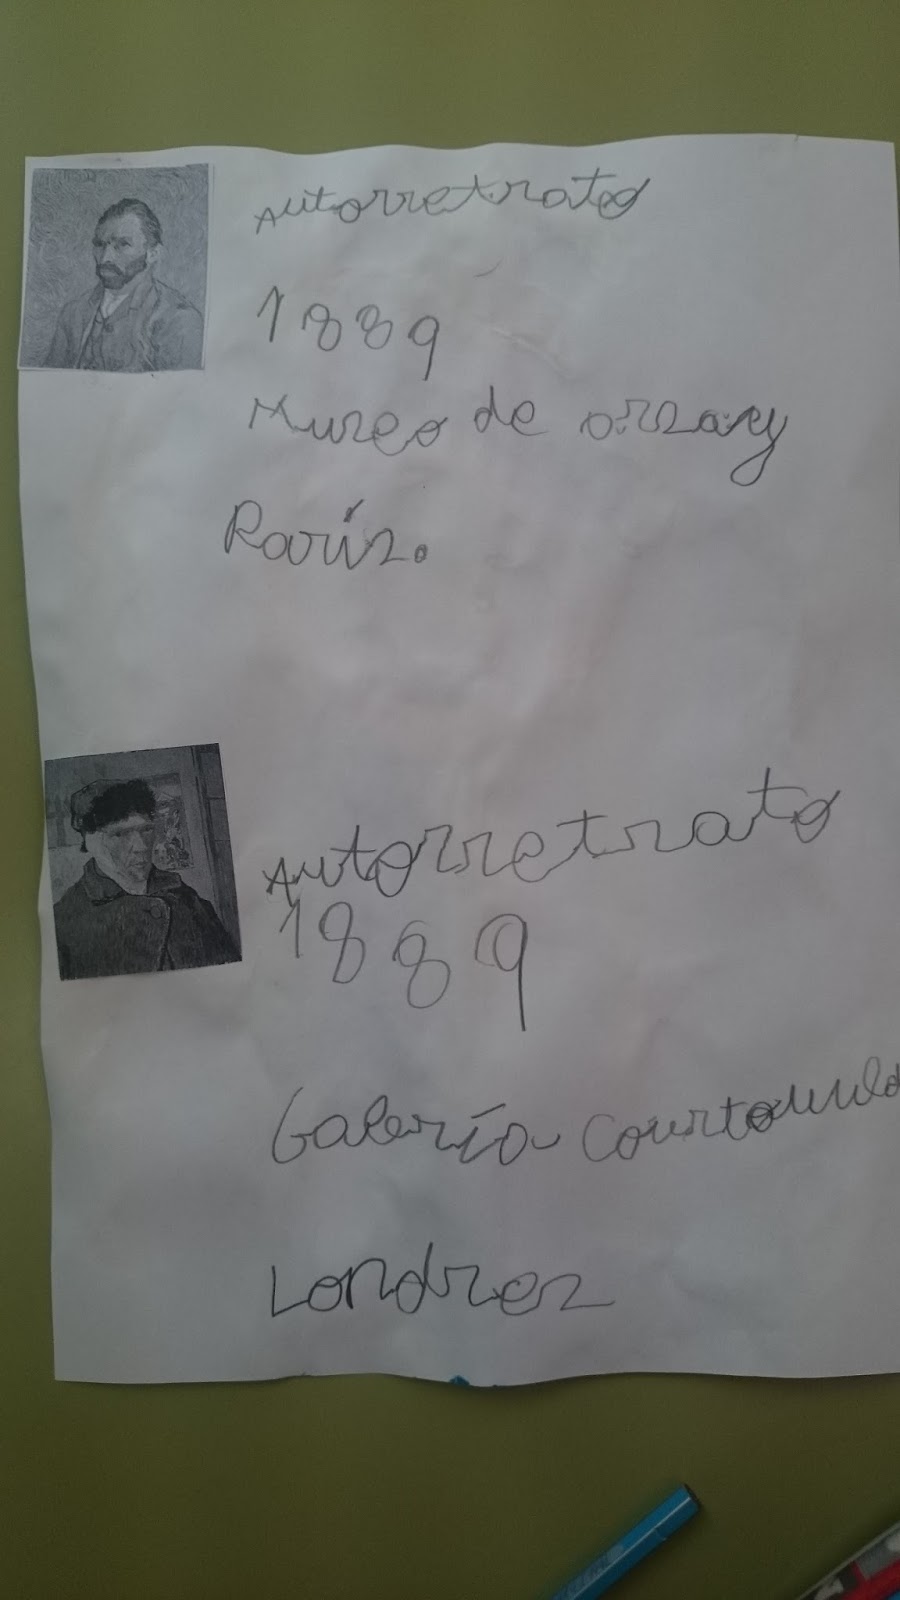 Autorretrato
1889
Museo de orsay
París.
Autorretrato
1889
Galería
Londres